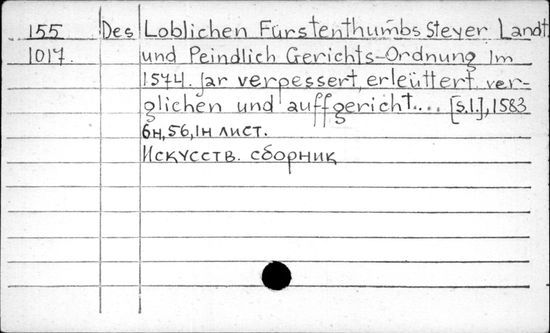 155 Des Loblichen Fürstenthumbs Steyer Landt
1017. und Peindlich Gerichts-Ordnung Im
1574. Jar verpessert, erleüttert, ver-
glichen und auffgericht.... [s.l.], 1583
6н, 56, 1н лист.
Искусств. сборник